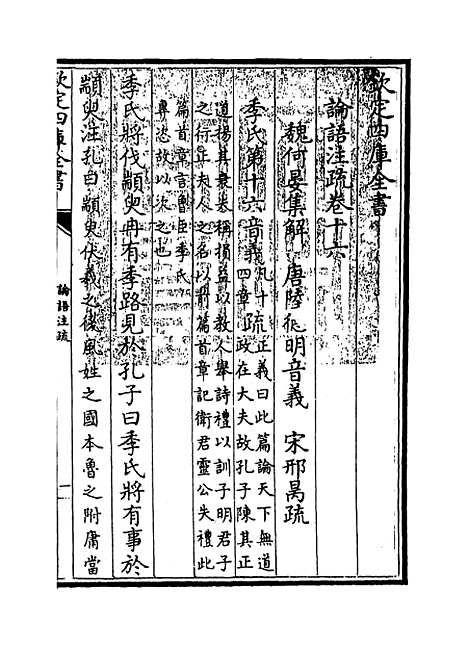 欽定四庫全書
論語注疏卷十六
魏何晏集解 唐陸德明音義 宋邢昺疏
季氏第十六音義凡十四章疏正義曰此篇論天下無道政在大夫故孔子陳其正
道揚其衰失稱損益以教人舉詩禮以訓子明君子
之行正夫人之名以前篇首章記衛君靈公失禮此
篇首章言魯臣季氏
專恣故以次之也
季氏將伐顓臾冉有季路見於孔子曰季氏將有事於
顓臾注孔曰顓臾伏羲之後風姓之國本魯之附庸當
欽定四庫全書
論語注疏
一